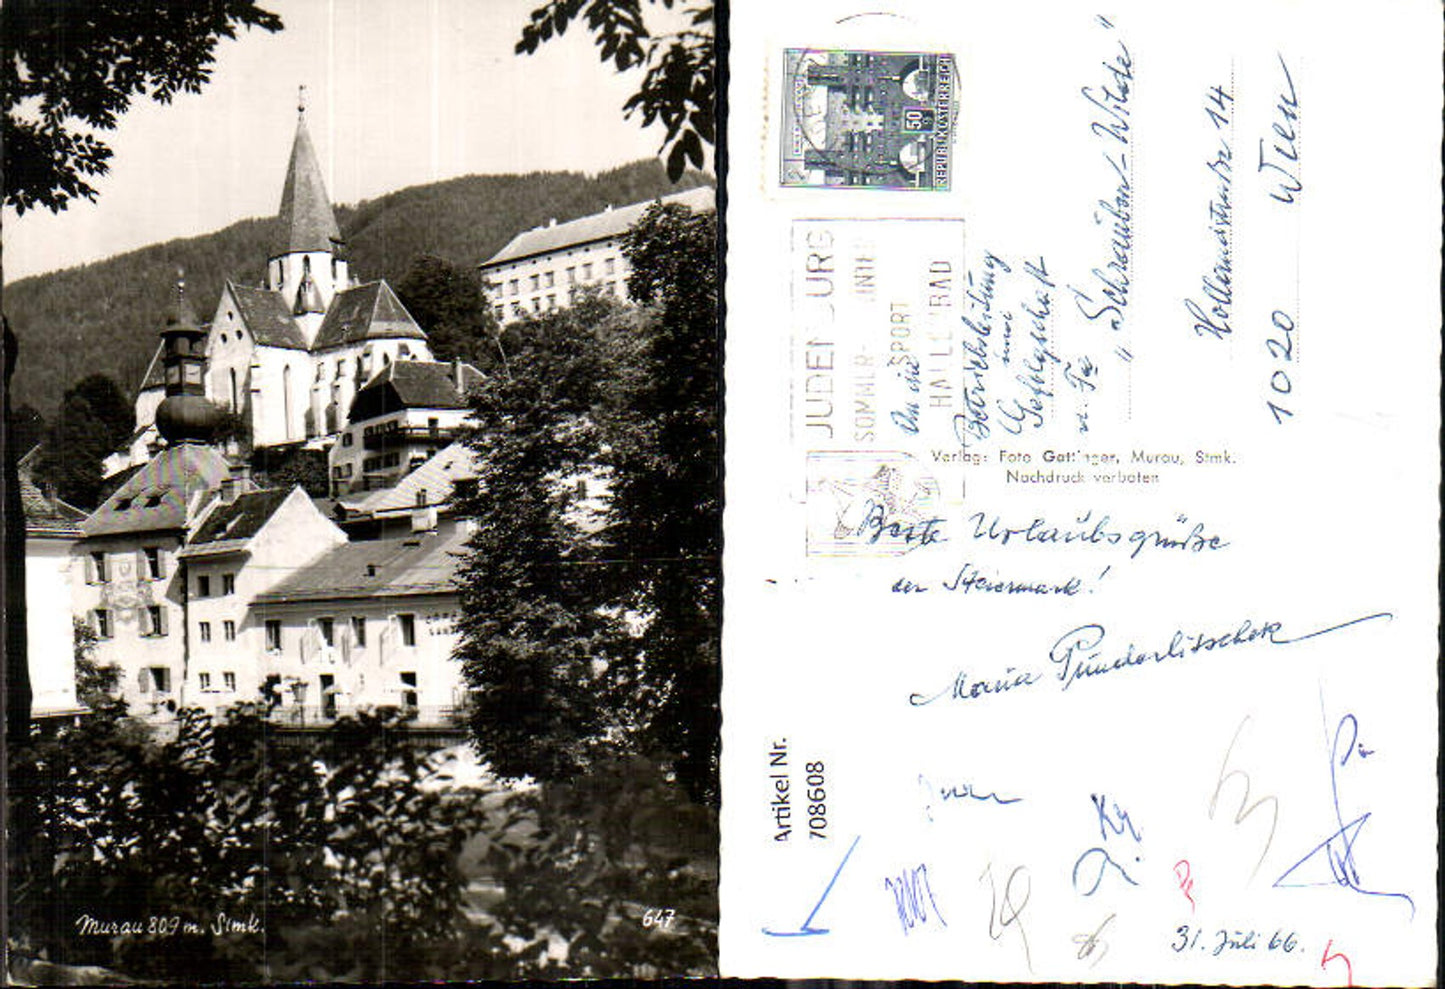 Murau 809 m. Stmk.
647
50 g
REPUBLIK ÖSTERREICH
JUDENBURG
SOMMER-
SPORT
HALLENBAD
An die
Betriebsleitung
und
Gefolgschaft
d. Fa
"Schrauben-Wilde"
Hollandstraße 14
1020 Wien
Verlag: Foto Gattinger, Murau, Stmk.
Nachdruck verboten
Beste Urlaubsgrüße
der Steiermark!
Maria Punderlitschek
31. Juli 66.
Artikel Nr.
708608